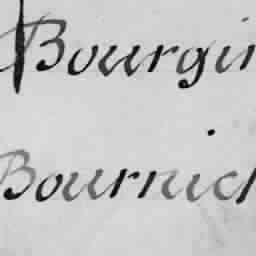 Bourgin
Bournich